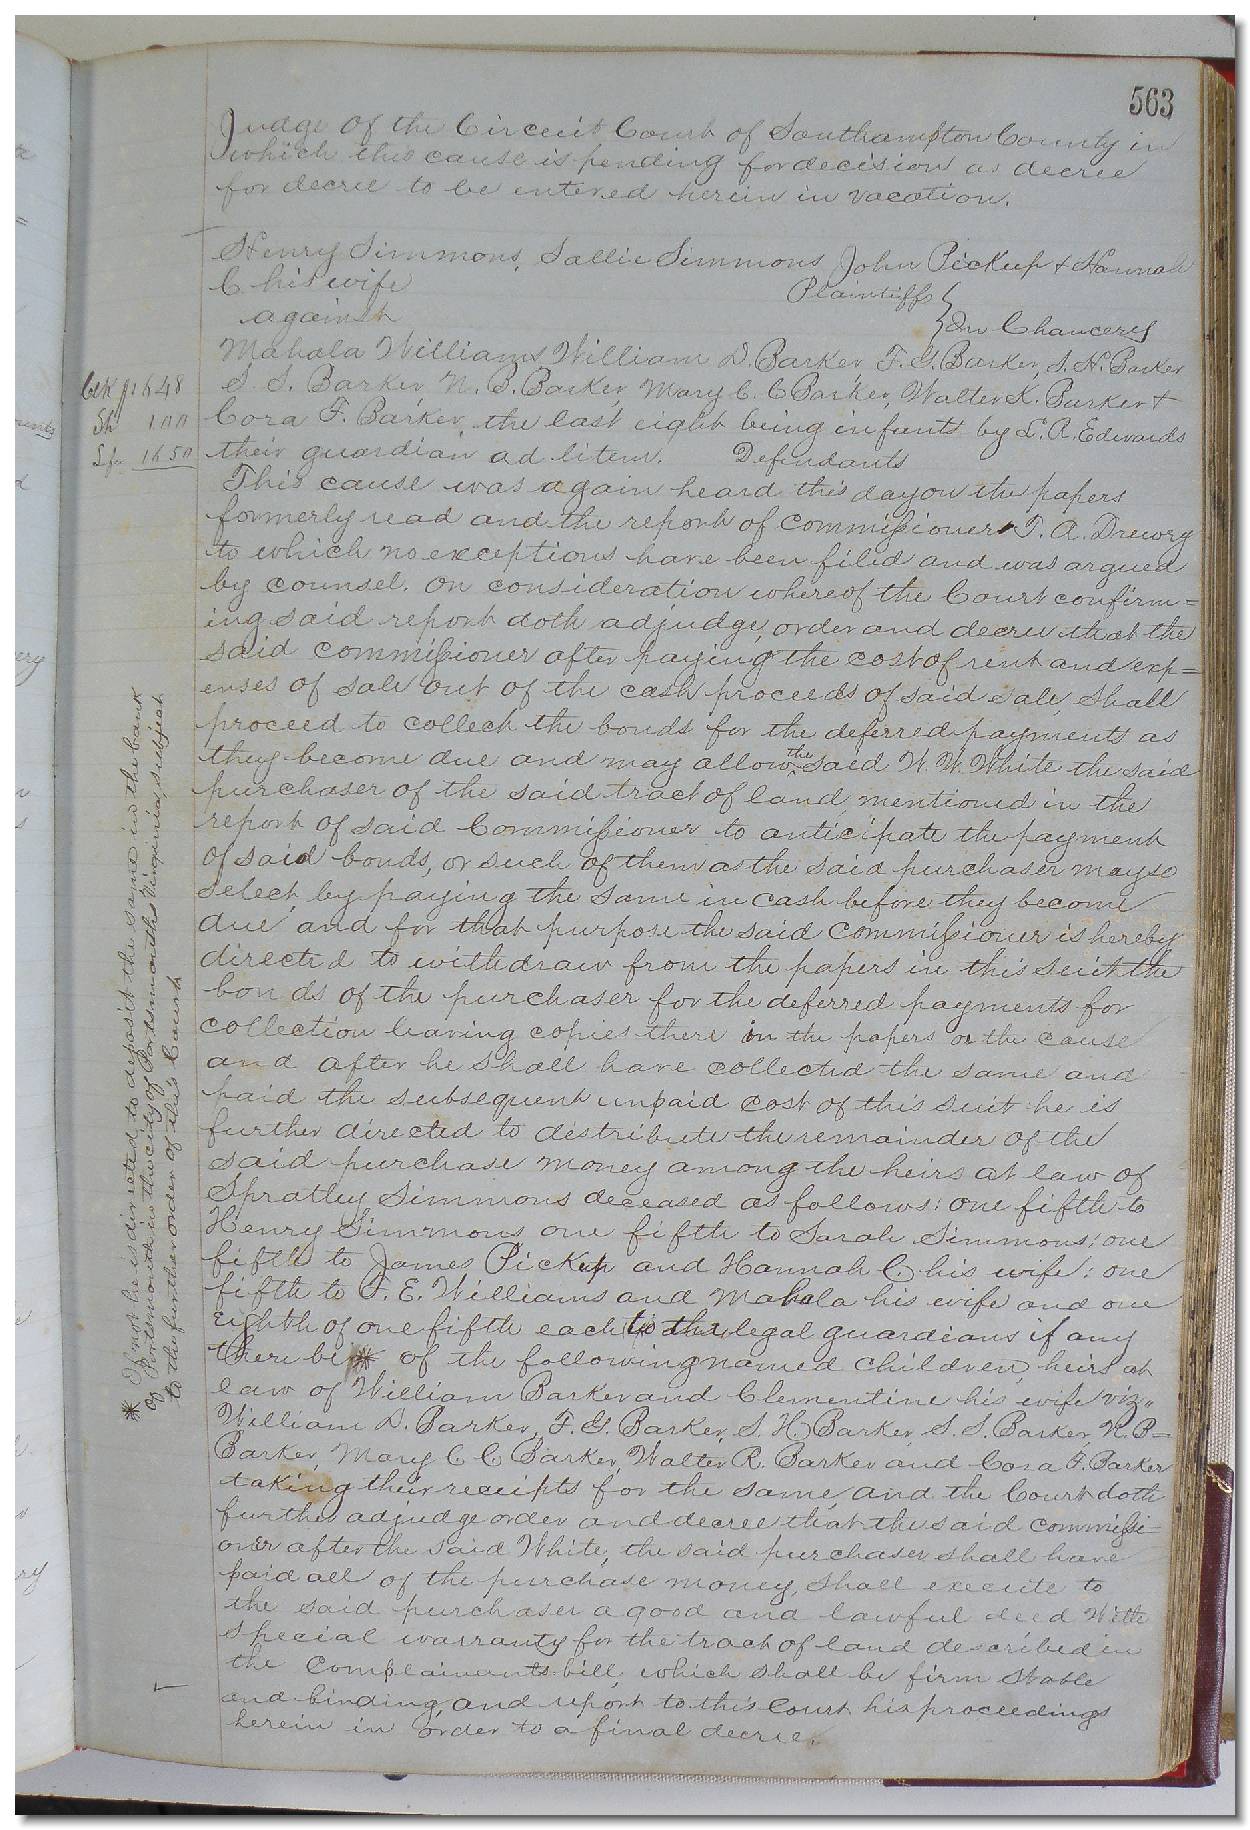 563
Judge of the Circuit Court of Southampton County in
which this cause is pending for decision as decree
for decree to be entered herein in vacation.
Henry Simmons, Sallie Simmons John Pickup + Hannah
C his wife Plaintiffs
against } In Chancery
Mahala Williams William D. Barker F. G. Barker, S. H. Barker
S. S. Barker, N. B. Barker, Mary C. C Barker, Walter R. Barker +
Cora F. Barker, the last eight being infants by L. R. Edwards
their guardian ad litem. Defendants
Sh 1 00
16 50
This cause was again heard this day on the papers
formerly read and the report of commissioner T. A. Drewry
to which no exceptions have been filed and was argued
by counsel. On consideration whereof the Court confirm=
ing said report doth adjudge, order and decree that the
said commissioner after paying the cost of rent and exp=
enses of sale out of the cash proceeds of said sale, shall
proceed to collect the bonds for the deferred payments as
they become due and may allow the said W. W. White the said
purchaser of the said tract of land, mentioned in the
report of said Commissioner to anticipate the payment
of said bonds, or such of them as the said purchaser may so
select, by paying the same in cash before they become
due, and for that purpose the said commissioner is hereby
directed to withdraw from the papers in this suit the
bonds of the purchaser for the deferred payments for
collection leaving copies there in the papers or the cause
and after he shall have collected the same and
paid the subsequent unpaid cost of this suit he is
further directed to distribute the remainder of the
said purchase money among the heirs at law of
Spratley Simmons deceased as follows: one fifth to
Henry Simmons one fifth to Sarah Simmons; one
fifth to James Pickup and Hannah C his wife; one
fifth to F. E. Williams and Mahala his wife and one
eighth of one fifth each to the legal guardians if any
there be * of the following named children, heirs at
law of William Barker and Clementine his wife viz.,
William D. Barker, F. G. Barker, S. H. Barker S. S. Barker, N. B=
Barker, Mary C C Barker, Walter R. Barker and Cora F. Barker
taking their receipts for the same, and the Court doth
further adjudge order and decree that the said commissi=
oner after the said White, the said purchaser shall have
paid all of the purchase money, shall execute to
the said purchaser a good and lawful deed with
special warranty for the tract of land described in
the Complainants bill, which shall be firm stable
and binding, and report to this Court his proceedings
herein in order to a final decree.
* If not he is directed to deposit the same in the bank
of Portsmouth in the city of Portsmouth Virginia, subject
to the further order of this Court